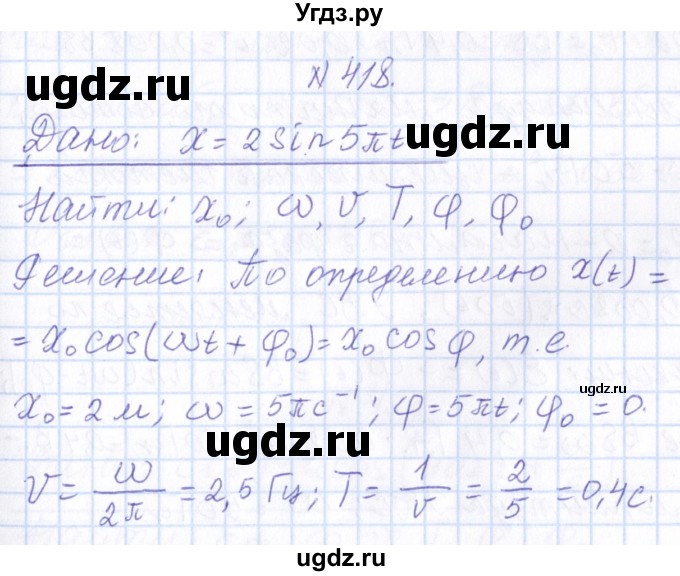 Угдз.ру
№ 418.
ugdz.ru
Дано: x = 2 sin 5πt
ugdz.ru
Найти: x₀; ω, ν, T, φ, φ₀
Решение: По определению x(t) =
= x₀ cos(ωt + φ₀) = x₀ cos φ, т.е.
ugdz.ru
x₀ = 2 м; ω = 5π с⁻¹; φ = 5πt; φ₀ = 0.
ugdz.ru
ν = ω/2π = 2,5 Гц; T = 1/ν = 2/5 = 0,4 с.
ugdz.ru
ugdz.ru